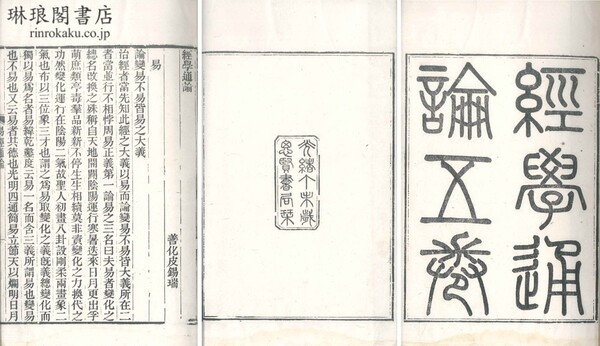 琳琅閣書店
rinrokaku.co.jp
經學通
論五卷
光緒丁未歲
思賢書局栞
經學通論
易
善化皮錫瑞
論變易不易皆易之大義
治經者當先知此經之大義以易而論變易不易皆大義所在二
者當並行不相悖周易正義第一論易之三名曰夫易者變化之
總名改換之殊稱自天地開闢陰陽運行寒暑迭來日月更出孚
萌庶類亭毒羣品新新不停生生相續莫非資變化之力換代之
功然變化運行在陰陽二氣故聖人初畫八卦設剛柔兩畫象二
氣也布以三位象三才也謂之爲易取變化之義旣義總變化而
獨以易爲名者易緯乾鑿度云易一名而含三義所謂易也變易
也不易也又云易者其德也光明四通簡易立節天以爛明日月